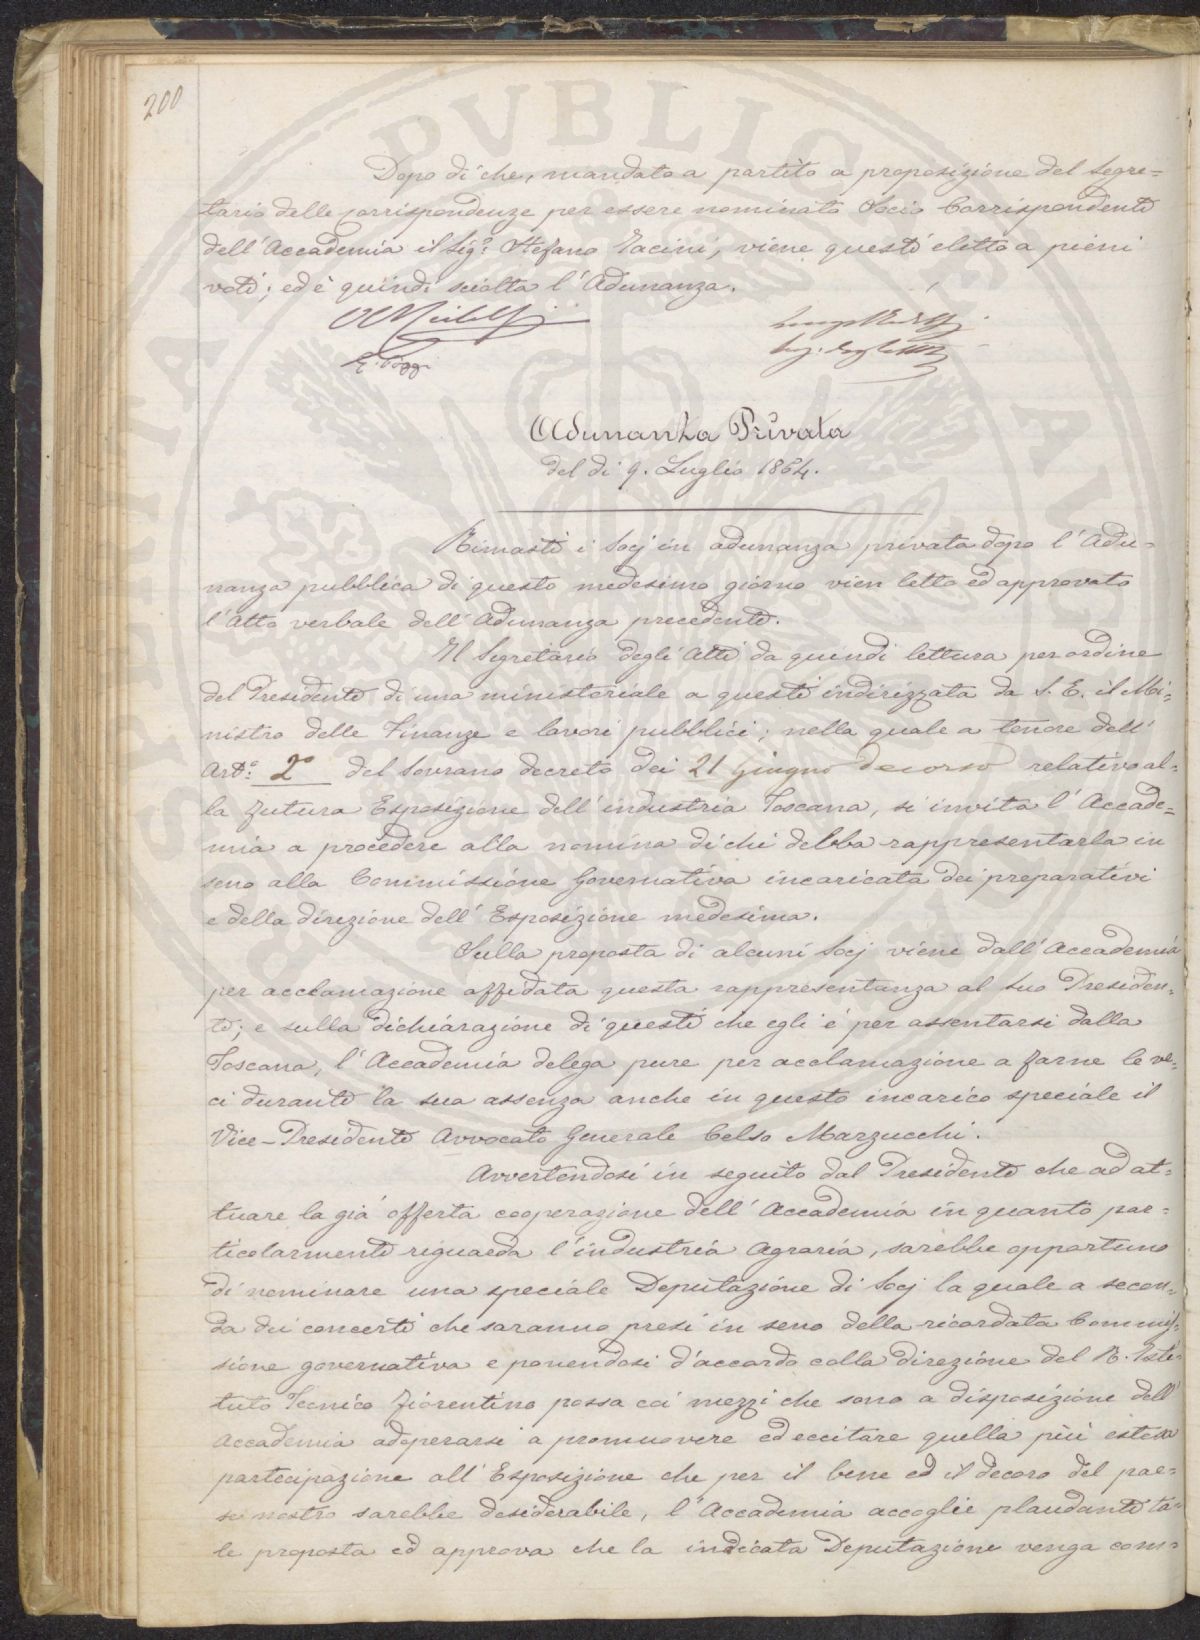 200
Dopo di che, mandato a partito a proposizione del Segre=
tario delle corrispondenze per essere nominato Socio Corrispondente
dell'Accademia il Sig.r Stefano Jacini, viene questi eletto a pieni
voti; ed è quindi sciolta l'Adunanza.
Adunanza Privata
del dì 9. Luglio 1864.
Rimasti i Socj in adunanza privata dopo l'Adu=
nanza pubblica di questo medesimo giorno vien letto ed approvato
l'Atto verbale dell'Adunanza precedente.
Il Segretario degli Atti da quindi lettura per ordine
del Presidente di una ministeriale a questi indirizzata da S. E. il Mi=
nistro delle Finanze e lavori pubblici; nella quale a tenore dell'
Art.o: 2o del Sovrano decreto dei 21 giugno decorso relativo al=
la futura Esposizione dell'industria Toscana, si invita l'Accade=
mia a procedere alla nomina di chi debba rappresentarla in
seno alla Commissione Governativa incaricata dei preparativi
e della direzione dell'Esposizione medesima.
Sulla proposta di alcuni Socj viene dall'Accademia
per acclamazione affidata questa rappresentanza al suo Presiden=
te; e sulla dichiarazione di questi che egli è per assentarsi dalla
Toscana, l'Accademia delega pure per acclamazione a farne le ve=
ci durante la sua assenza anche in questo incarico speciale il
Vice-Presidente Avvocato Generale Celso Marzucchi.
Avvertendosi in seguito dal Presidente che ad at=
tuare la già offerta cooperazione dell'Accademia in quanto par=
ticolarmente riguarda l'industria Agraria, sarebbe opportuno
di nominare una speciale Deputazione di Socj la quale a secon=
da dei concerti che saranno presi in seno della ricordata Commis=
sione governativa e ponendosi d'accordo colla direzione del R. Isti=
tuto Tecnico Fiorentino possa coi mezzi che sono a disposizione dell'
Accademia adoperarsi a promuovere ed eccitare quella più estesa
partecipazione all'Esposizione che per il bene ed il decoro del pae=
se nostro sarebbe desiderabile, l'Accademia accoglie plaudente ta=
le proposta ed approva che la indicata Deputazione venga com=